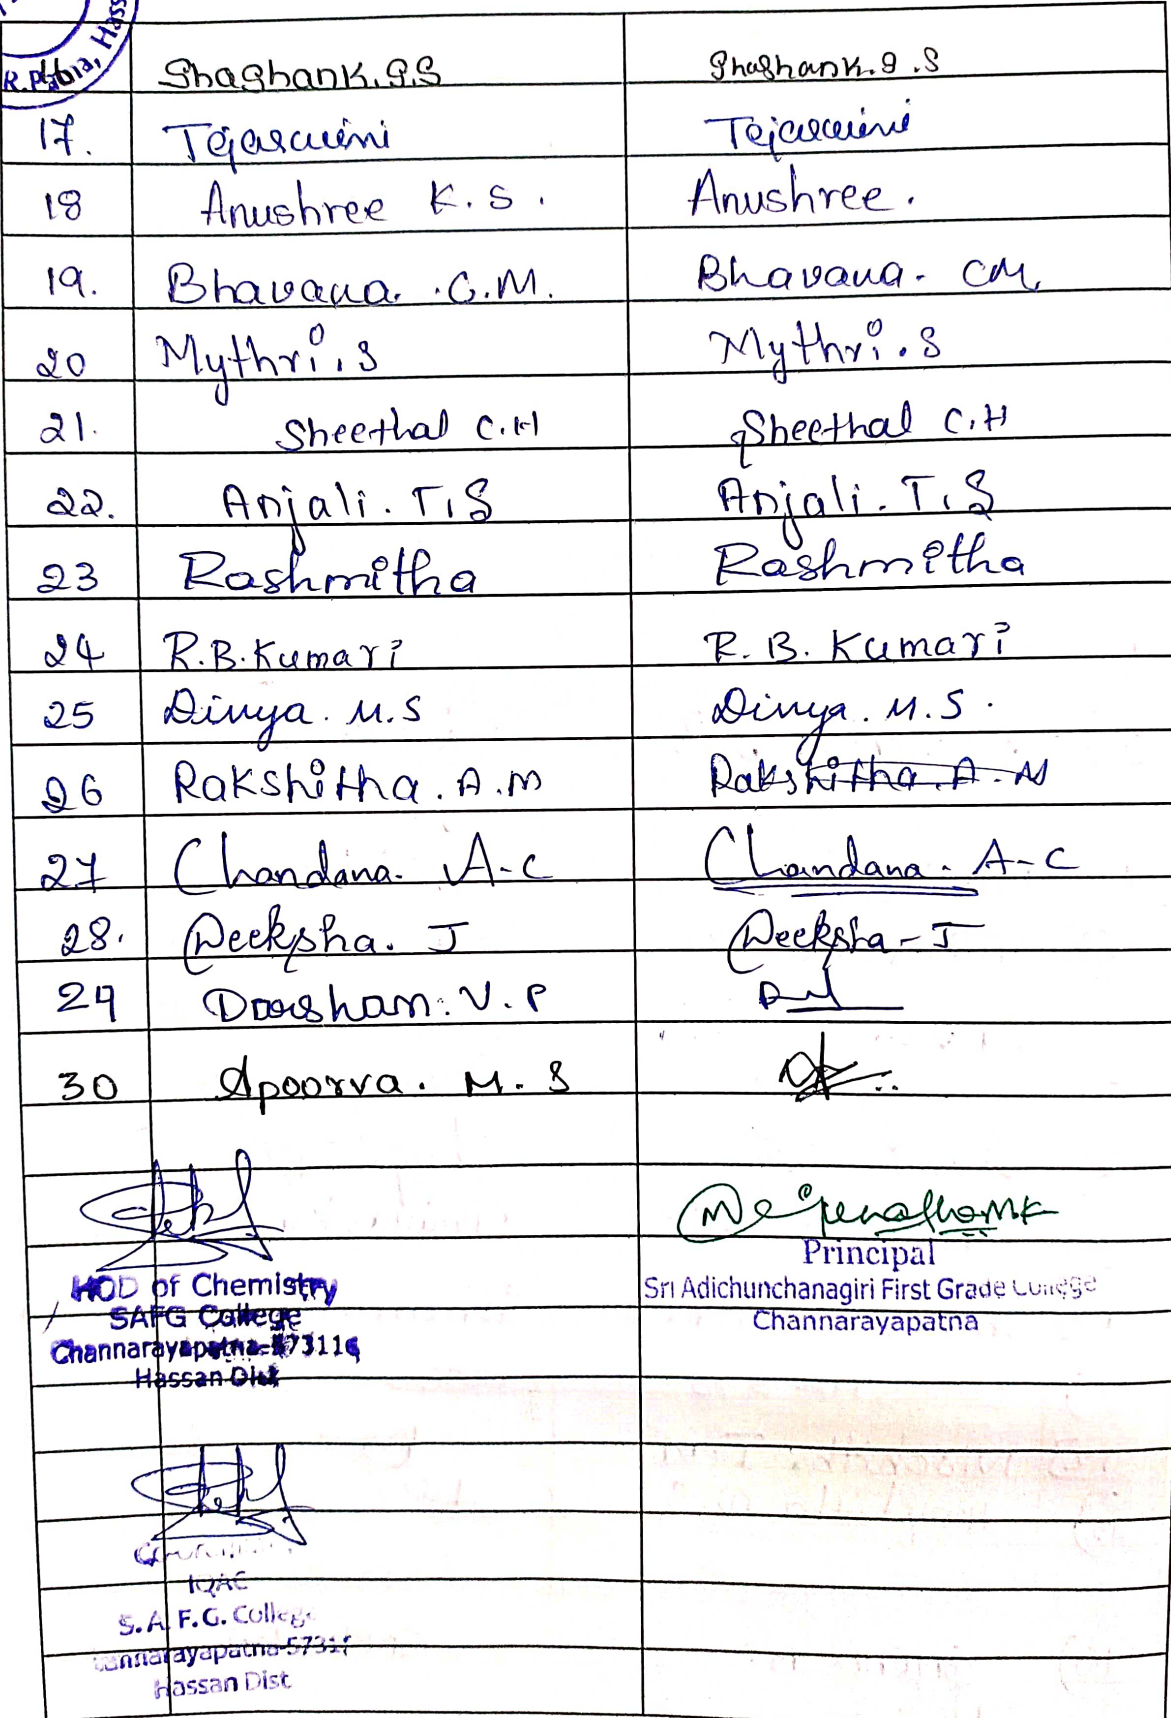 R.Patna, Hass
Shashank.G.S Shashank.G.S
17. Tejaswini Tejaswini
18 Anushree K.S. Anushree.
19. Bhavana. C.M. Bhavana. CM.
20 Mythri.S Mythri.S
21. Sheethal C.H Sheethal C.H
22. Anjali.T.S Anjali.T.S
23 Rashmitha Rashmitha
24 R.B.Kumari R.B.Kumari
25 Divya.M.S Divya.M.S.
26 Rakshitha.A.M Rakshitha.A.M
27 Chandana. A-C Chandana. A-C
28. Deeksha. J Deeksha-J
29 Darshan. V.P
30 Apoorva. M.S
HOD of Chemistry
SAFG College
Channarayapatna-573116
Hassan Dist
Principal
Sri Adichunchanagiri First Grade College
Channarayapatna
IQAC
S.A.F.G. College
Hassan Dist